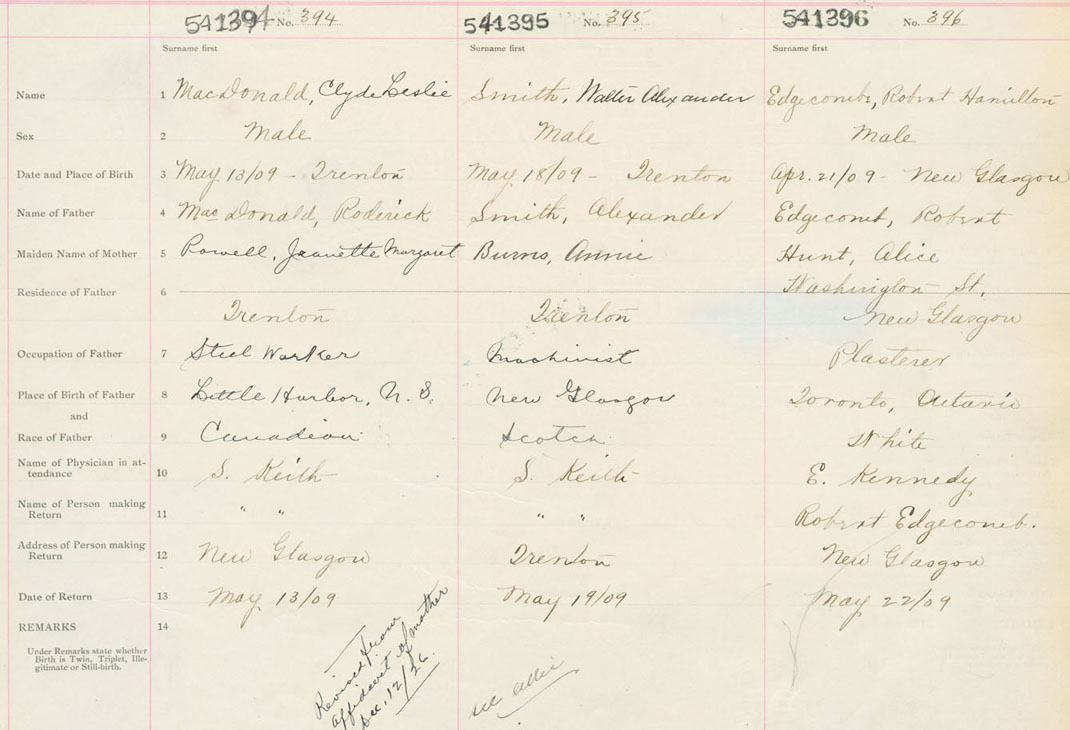 541394 No. 394 541395 No. 395 541396 No. 396
Surname first Surname first Surname first
Name 1 MacDonald, Clyde Leslie Smith, Walter Alexander Edgecombe, Robert Hamilton
Sex 2 Male Male Male
Date and Place of Birth 3 May 13/09 - Trenton May 18/09 - Trenton Apr. 21/09 - New Glasgow
Name of Father 4 MacDonald, Roderick Smith, Alexander Edgecomb, Robert
Maiden Name of Mother 5 Powell, Jeanette Margaret Burns, Annie Hunt, Alice
Washington St.
Residence of Father 6
Trenton Trenton New Glasgow
Occupation of Father 7 Steel Worker Machinist Plasterer
Place of Birth of Father 8 Little Harbor, N. S. New Glasgow Toronto, Ontario
and
Race of Father 9 Canadian Scotch White
Name of Physician in at-
tendance 10 S. Keith S. Keith E. Kennedy
Name of Person making
Return 11 " " " " Robert Edgecomb.
Address of Person making
Return 12 New Glasgow Trenton New Glasgow
Date of Return 13 May 13/09 May 19/09 May 22/09
REMARKS 14
Under Remarks state whether
Birth is Twin, Triplet, Ille-
gitimate or Still-birth.
Revised from
affidavit of mother
Dec. 12/26.